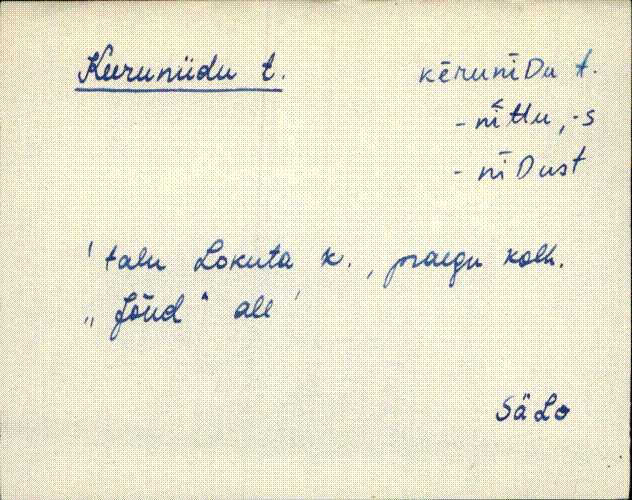 Keeruniidu t.
kēruniDu t.
- nī̆ttu, -s
- nīDust
' talu Lokuta k., praegu kolh.
„Jõud" all '
SäLo